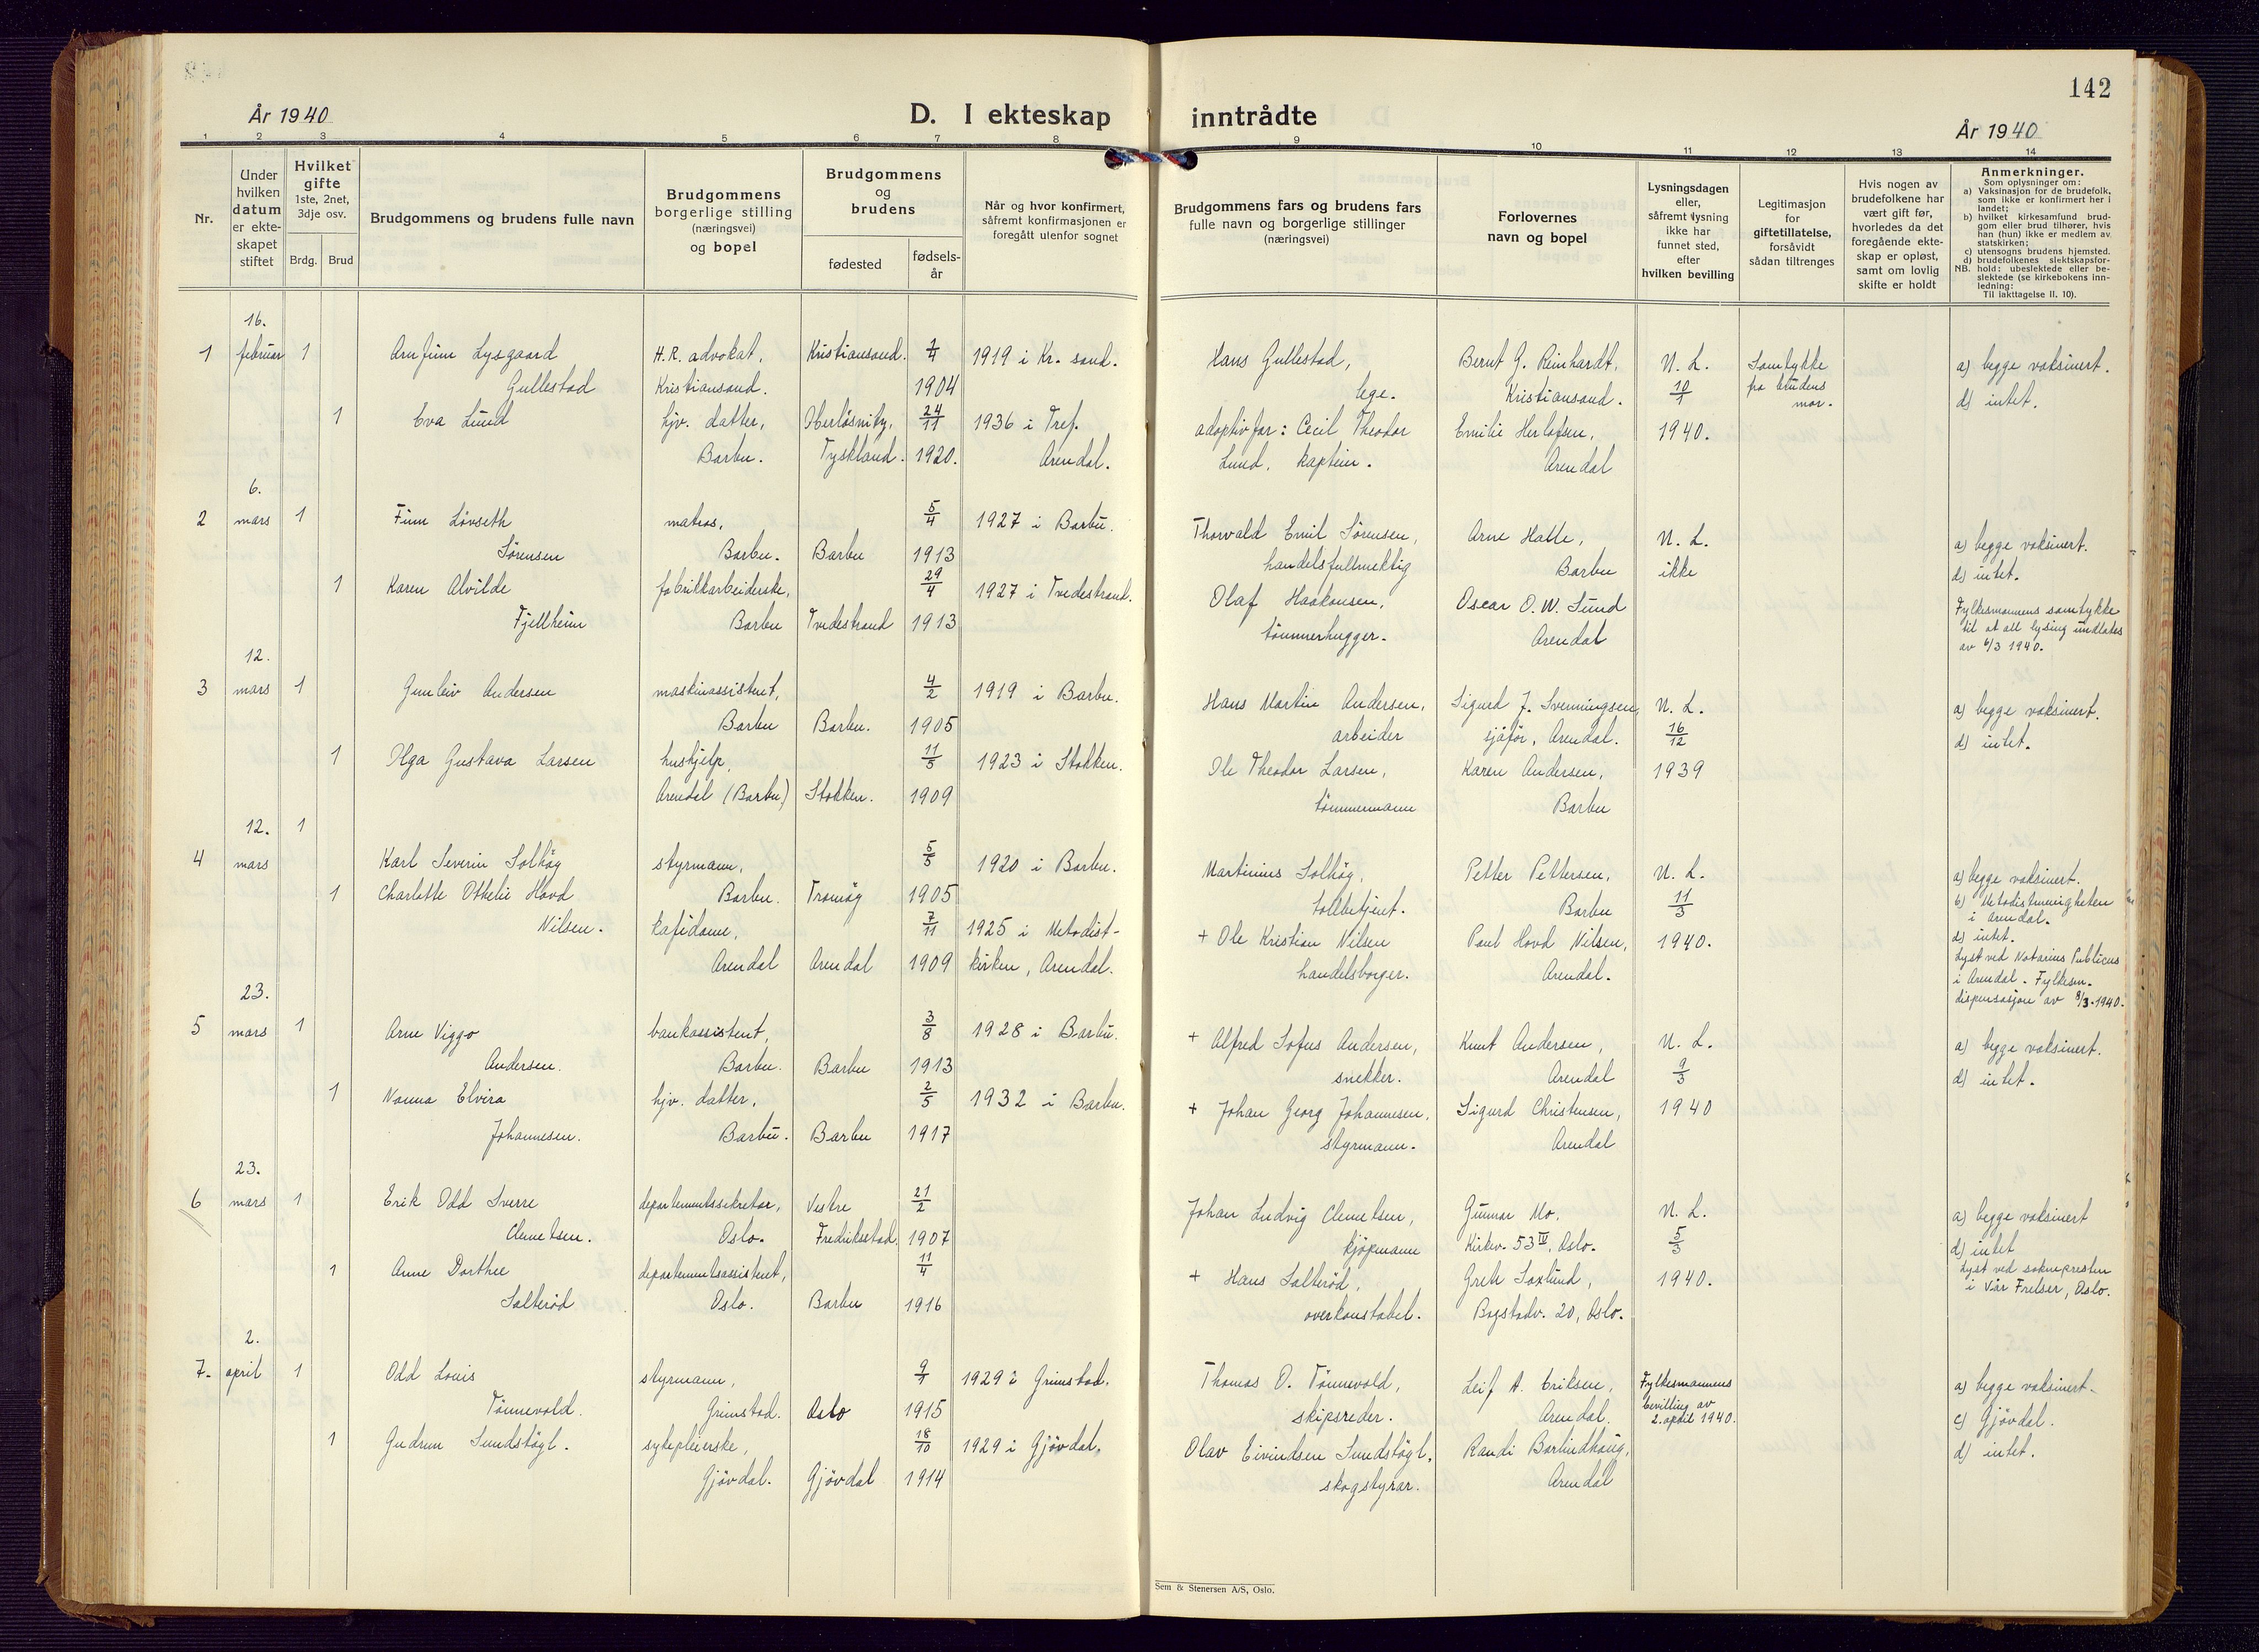 142
År 1940
D. I ekteskap inntrådte
År 1940
1 2 3 4 5 6 7 8 9 10 11 12 13 14
Nr.
Under hvilken datum er ekteskapet stiftet
Hvilket gifte 1ste, 2net, 3dje osv.
Brdg. Brud
Brudgommens og brudens fulle navn
Brudgommens borgerlige stilling (næringsvei) og bopel
Brudgommens og brudens
fødested
fødsels-år
Når og hvor konfirmert, såfremt konfirmasjonen er foregått utenfor sognet
Brudgommens fars og brudens fars fulle navn og borgerlige stillinger (næringsvei)
Forlovernes navn og bopel
Lysningsdagen eller, såfremt lysning ikke har funnet sted, efter hvilken bevilling
Legitimasjon for giftetillatelse, forsåvidt sådan tiltrenges
Hvis nogen av brudefolkene har vært gift før, hvorledes da det foregående ekteskap er opløst, samt om lovlig skifte er holdt
Anmerkninger.
Som oplysninger om:
a) Vaksinasjon for de brudefolk, som ikke er konfirmert her i landet;
b) hvilket kirkesamfund brudgom eller brud tilhører, hvis han (hun) ikke er medlem av statskirken;
c) utensogns brudens hjemsted.
d) brudefolkenes slektskapsforhold: ubeslektede eller beslektede (se kirkebokens innledning:
NB.
Til iakttagelse II. 10).
16.
1 februar 1 Arnfinn Lysgaard H.R. advokat, Kristiansand. 2/4 1919 i Kr. sand. Hans Gullestad, Bernt G. Reinhardt, N. L. Samtykke a) begge vaksinert.
Gullestad Kristiansand. 1904 lege. Kristiansand. 10/1 fra brudens mor. d) intet.
1 Eva Lund hjv. datter, 24/11 1936 i Tref. adoptivfar: Cecil Theodor Emilie Herlofsen, 1940.
Barbu. Tyskland. 1920. Arendal. Lund, kaptein. Arendal
6.
2 mars 1 Finn Lövseth matros, 5/4 1927 i Barbu. Thorvald Emil Sörensen, Arne Halle, N. L. a) begge vaksinert.
Sörensen Barbu. Barbu 1913 handelsfullmektig Barbu ikke d) intet.
1 Karen Alvilde fabrikkarbeiderske, 29/4 1927 i Tvedestrand. Olaf Haakonsen, Oscar O. W. Lund Fylkesmannens samtykke
Fjellheim Barbu Tvedestrand 1913 tömmerhugger. Arendal til at all lysing undlates
av 6/3 1940.
12.
3 mars 1 Gunleiv Andersen maskinassistent, 4/2 1919 i Barbu. Hans Martin Andersen, Sigurd J. Svenningsen, N. L. a) begge vaksinert.
Barbu Barbu. 1905 arbeider sjåför, Arendal. 16/12 d) intet.
1 Olga Gustava Larsen hushjelp, 11/5 1923 i Stokken. Ole Theodor Larsen, Karen Andersen, 1939
Arendal (Barbu) Stokken. 1909 tömmermann Barbu
12. 1
4 mars Karl Severin Solhög styrmann, 5/5 1920 i Barbu. Martinius Solhög, Petter Pettersen, N. L. a) begge vaksinert.
1 Charlotte Othelie Hovd Barbu. Tromöy 1905 tollbetjent. Barbu 11/3 b) Metodistmenigheten i Arendal.
Nilsen. kafédame, 7/11 1925 i Metodist- + Ole Kristian Nilsen Paul Hovd Nilsen, 1940. d) intet.
Arendal Arendal 1909 kirken, Arendal. handelsborger. Arendal. Lyst ved Notarius Publicus
i Arendal. Fylkesm.
dispensasjon av 8/3-1940.
23.
5 mars 1 Arne Viggo bankassistent, 3/8 1928 i Barbu. + Alfred Sofus Andersen, Knut Andersen, N. L. a) begge vaksinert.
Andersen. Barbu. Barbu 1913 snekker. Arendal 9/3 d) intet.
1 Nanna Elvira hjv. datter, 2/5 1932 i Barbu. + Johan Georg Johannesen, Sigurd Christensen, 1940
Johannesen. Barbu. Barbu 1917 styrmann. Arendal
23.
6 mars 1 Erik Odd Sverre departementssekretær, Vestre 21/2 Johan Ludvig Clemetsen, Gunnar Mo, N. L. a) begge vaksinert
Clemetsen. Oslo. Fredrikstad. 1907 kjöpmann Kirkev. 53 IV, Oslo. 5/3 d) intet
1 Anne Dorthee departementsassistent, 11/4 + Hans Salteröd, Grete Saxlund, 1940. Lyst ved soknepresten
Salteröd Oslo. Barbu 1916 overkonstabel. Bogstadv. 20, Oslo. i Vår Frelser, Oslo.
2.
7. april 1 Odd Louis styrmann, 9/1 1929 i Grimstad. Thomas O. Tönnevold, Leif A. Eriksen, Fylkesmannens a) begge vaksinert.
Tönnevold. Grimstad. Oslo 1915 skipsreder. Arendal. bevilling av 2. april 1940. c) Gjövdal.
1 Gudrun Sundstögl. sykepleierske, 18/10 1929 i Gjövdal. Olav Eivindsen Sundstögl, Randi Barlindhaug, d) intet.
Gjövdal. Gjövdal 1914 skogstyrar. Arendal
Sem & Stenersen A/S, Oslo.